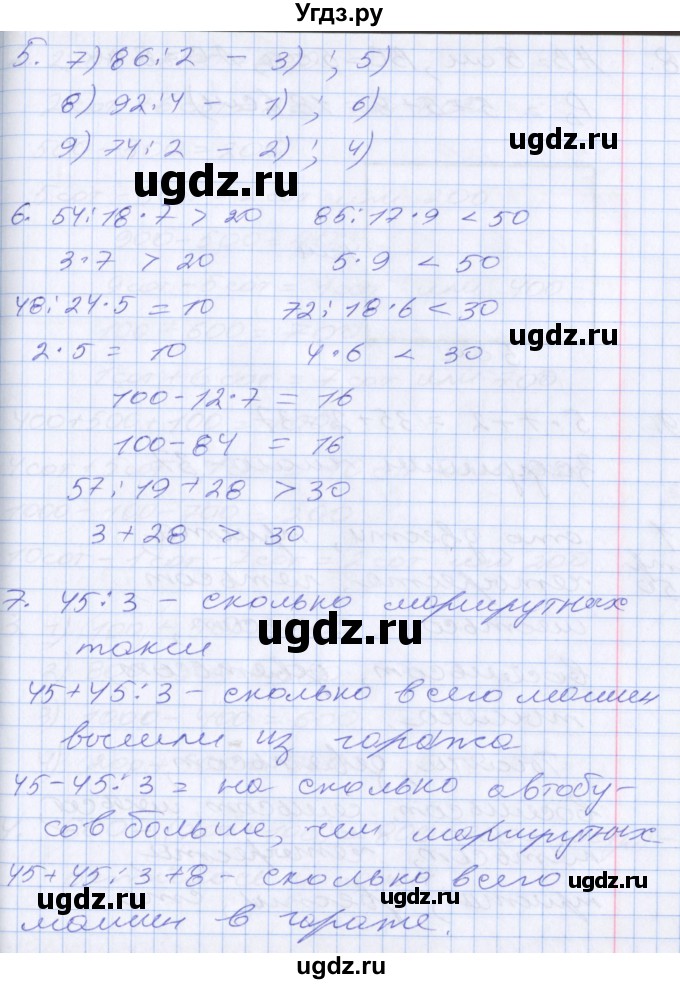 Угдз.ру
5. 7) 86:2 – 3) ; 5)
8) 92:4 – 1) ; 6)
ugdz.ru
9) 74:2 – 2) ; 4)
ugdz.ru
ugdz.ru
6. 54:18·7 > 20 85:17·9 < 50
3·7 > 20 5·9 < 50
48:24·5 = 10 72:18·6 < 30
ugdz.ru
2·5 = 10 4·6 < 30
100–12·7 = 16
100–84 = 16
57:19+28 > 30
3+28 > 30
7. 45:3 – сколько маршрутных
ugdz.ru
такси
45+45:3 – сколько всего машин
вышли из гаража
45–45:3 = на сколько автобу-
сов больше, чем маршрутных
45+45:3+8 – сколько всего
ugdz.ru
ugdz.ru
машин в гараже.
ugdz.ru
ugdz.ru